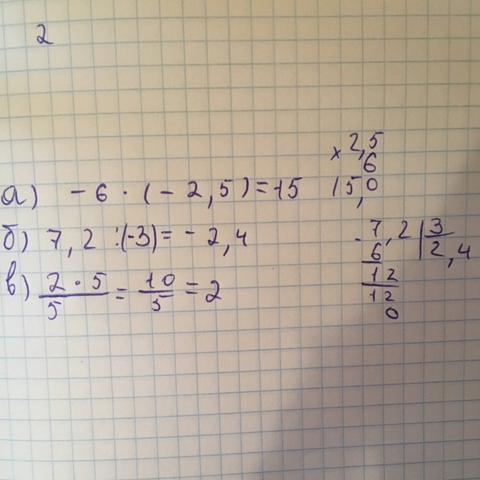 2
а) -6 · (-2,5) = -15
б) 7,2 : (-3) = -2,4
в) 2 · 5 / 5 = 10 / 5 = 2
× 2,5
6
15,0
- 7,2 | 3
6 | 2,4
12
12
0